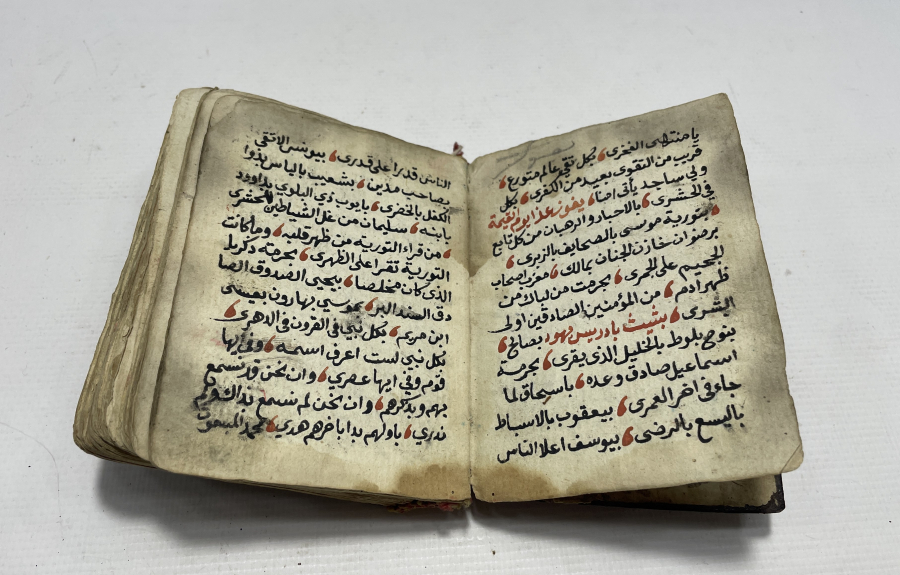 يا منتهى الفخرى، بكل تقي عالم متورع،
قريب من التقوى بعيد من الكفرى، بكل
ولي ساجد يأتى اضا، يفون غدا يوم القيمة
في الحشرى، بالاحبار والرهبان من كل تابع
بتورية موسى بالصحايف الزبرى،
برضوان خازن الجنان بمالك، معزب اصحاب
الجحيم على الجمرى، بحرمت من لباك من
ظهر ادم، من المؤمنين الصادقين اولى
البشرى، بشيث بادريس بهود بصالح،
بنوح بلوط بالخليل الذى يقرى، بحرمة
اسماعيل صادق وعده، باسحاق لما
جاء في اخر العمرى، بيعقوب بالاسباط
باليسع بالرضى، بيوسف اعلا الناس
الناس قديرا على قدرى، بيونس الاتقى
بصاحب مدين، بشعيب بالياس بذوا
الكفل بالخضرى، بايوب ذي البلوى بداوود
بابنه، سليمان من غل الشياطين الحشرى
، من قراء التورية من ظهر قلبه، وما كانت
التورية تقرا على الظهرى، بحرمة ذكريا
الذى كان مخلصا، بيحيى الصدوق الصا
دق الصند البر، بموسى بهارون بعيسى
ابن مريم، بكل نبي في القرون في الدهرى،
بكل نبي لست اعرف اسمه، وفي ايها
قوم وفي ايها عصرى، وان نحن قد نسمع
بهم وبذكرهم، وان نحن لم نسمع بذاك ولم
ندرى، باولهم بدا باخرهم هدى، محمد المبعوث